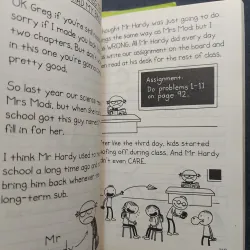 OK Greg if you're
sorry if I made you
two chapters. But
in this one you're gonna
pretty good.
So last year our science
Mrs Modi, but when she
school got this guy named
fill in for her.
I think Mr Hardy used to
school a long time ago and
bring him back whenever
long-term sub.
Mr
thought Mr Hardy was just going to do
things the same way as Mrs Modi but I
WRONG. All Mr Hardy did every day
write an assignment on the board and
read at his desk for the rest of class.
Assignment:
Do problems 1-11
on page 92.
after like the third day, kids started
goofing off during class. And Mr Hardy
didn't even CARE.